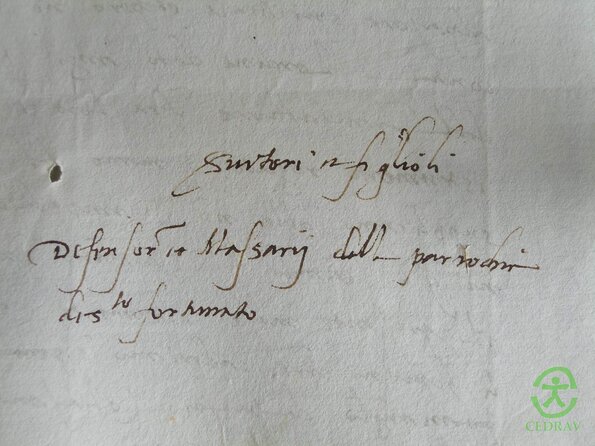 et figlioli
Defensori et Massarij della parrochie
di s.to fortunato
CEDRAV